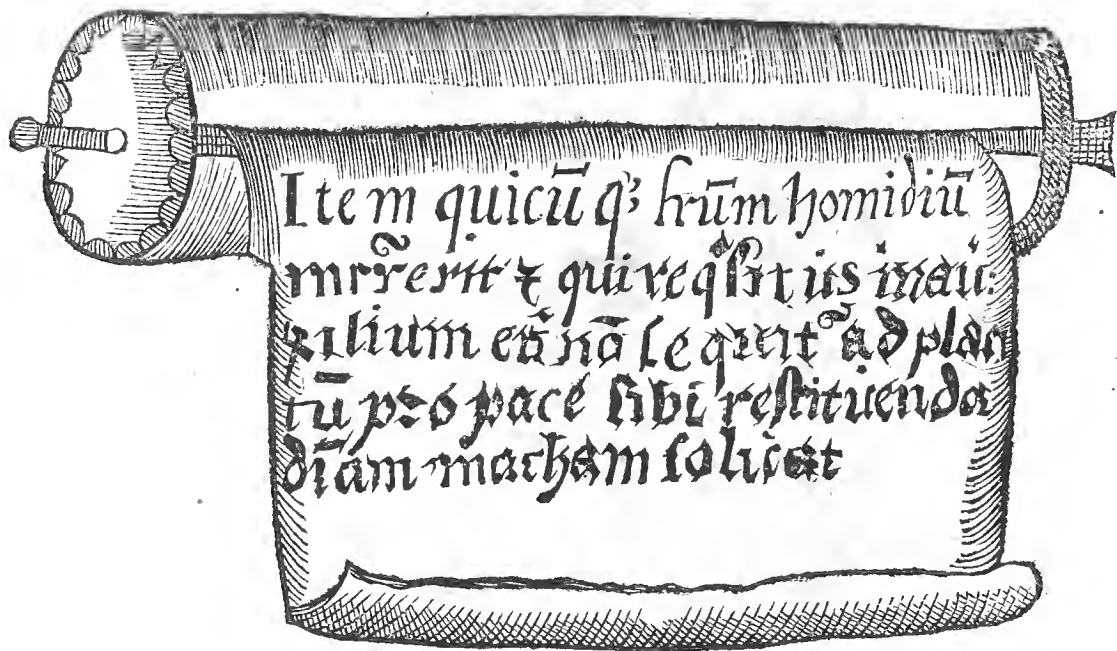 Item quicū qꝫ frūm homidiū
mcr̃erit ⁊ qui reqͥsit us inau:
xilium eū nō sequit᷑ ad placi
tū pro pace sibi restituenda
dīam marcham